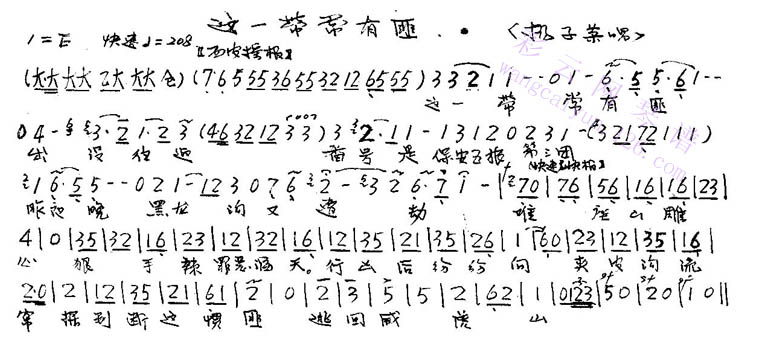 这一带常有匪 . • <杨子荣唱>
1=E 快速♩=208
【西皮摇板】
(大大 大大 乙大 大大 仓) (7 6 5 5 5 3 6 5 5 3 2 1 2 6 5 5 5) 3 3 2 1 1 - - 0 1 - 6 · 5 5 · 6 1 - -
这 一 带 常 有 匪
0 4 - 3 · 2 1 · 2 3 (4 6 3 2 1 2 3 3) 3 2 · 1 1 - 1 3 1 2 0 2 3 1 - (3 2 1 7 2 1 1 1)
出 没 往 返 番号 是 保安五旅 第三团
【快速垛板】
1 6 · 5 5 - - 0 2 1 - 1 2 3 0 7 6 2 - 3 2 6 · 7 1 - | 7 0 | 7 6 | 5 6 | 1 6 | 1 6 | 2 3 |
昨夜晚 黑龙 沟又 遭 劫 座山雕
4 | 0 | 3 5 | 3 2 | 1 6 | 2 3 | 1 2 | 3 2 | 1 6 | 1 2 | 3 5 | 2 1 | 3 5 | 2 6 | 1 | 6 0 | 2 3 | 1 2 | 3 5 | 1 6 |
心 狠 手 辣 罪恶滔天。行凶后纷纷向 夹皮沟流
2·0 | 2 | 1 2 | 3 5 | 2 1 | 6 1 | 2 | 0 | 2 | 3 | 5 | 5 | 2 | 6 2 | 1 | 0 1 2 3 | 5 0 | 2 0 | 1 0 ||
窜 探到断这 惯匪 逃回威 虎 山
彩云网琴谱